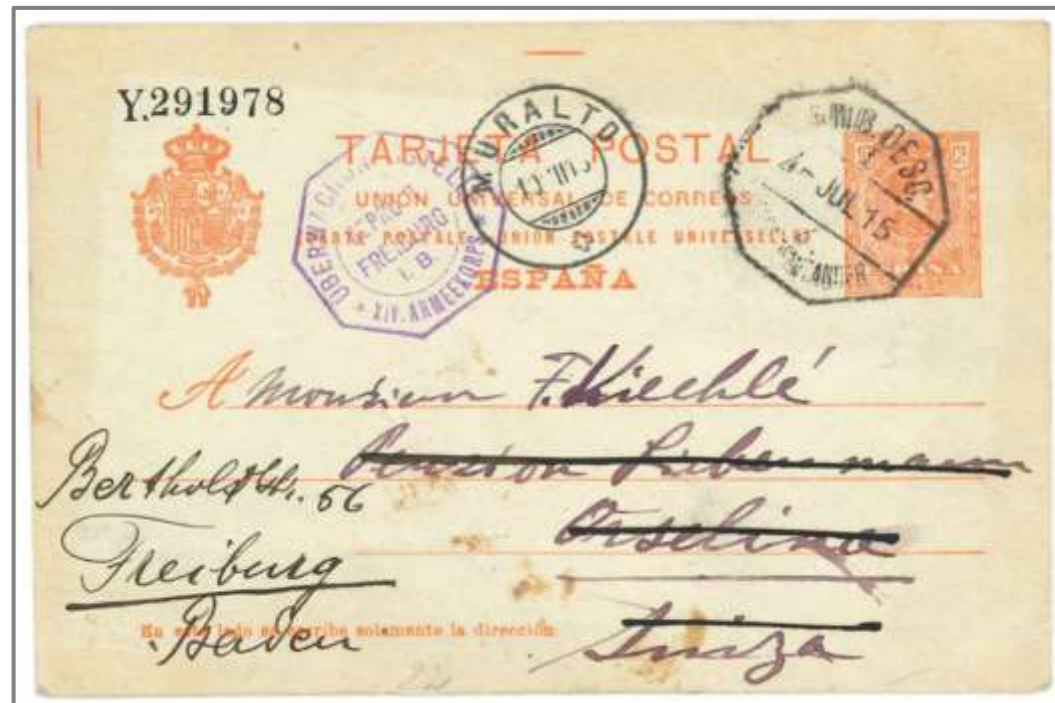 Y.291978
TARJETA POSTAL
UNIÓN UNIVERSAL DE CORREOS
CARTE POSTALE UNION POSTALE UNIVERSELLE
ESPAÑA
MURALTO
AMB. DESC.
4- JUL 15
FREIBURG
I. B
XIV. ARMEEKORPS
A Monsieur F. Kiechlé
Pension Liebermann
Orselina
Suiza
Bertholdstr. 56
Freiburg
Baden
En este lado se escribe solamente la dirección